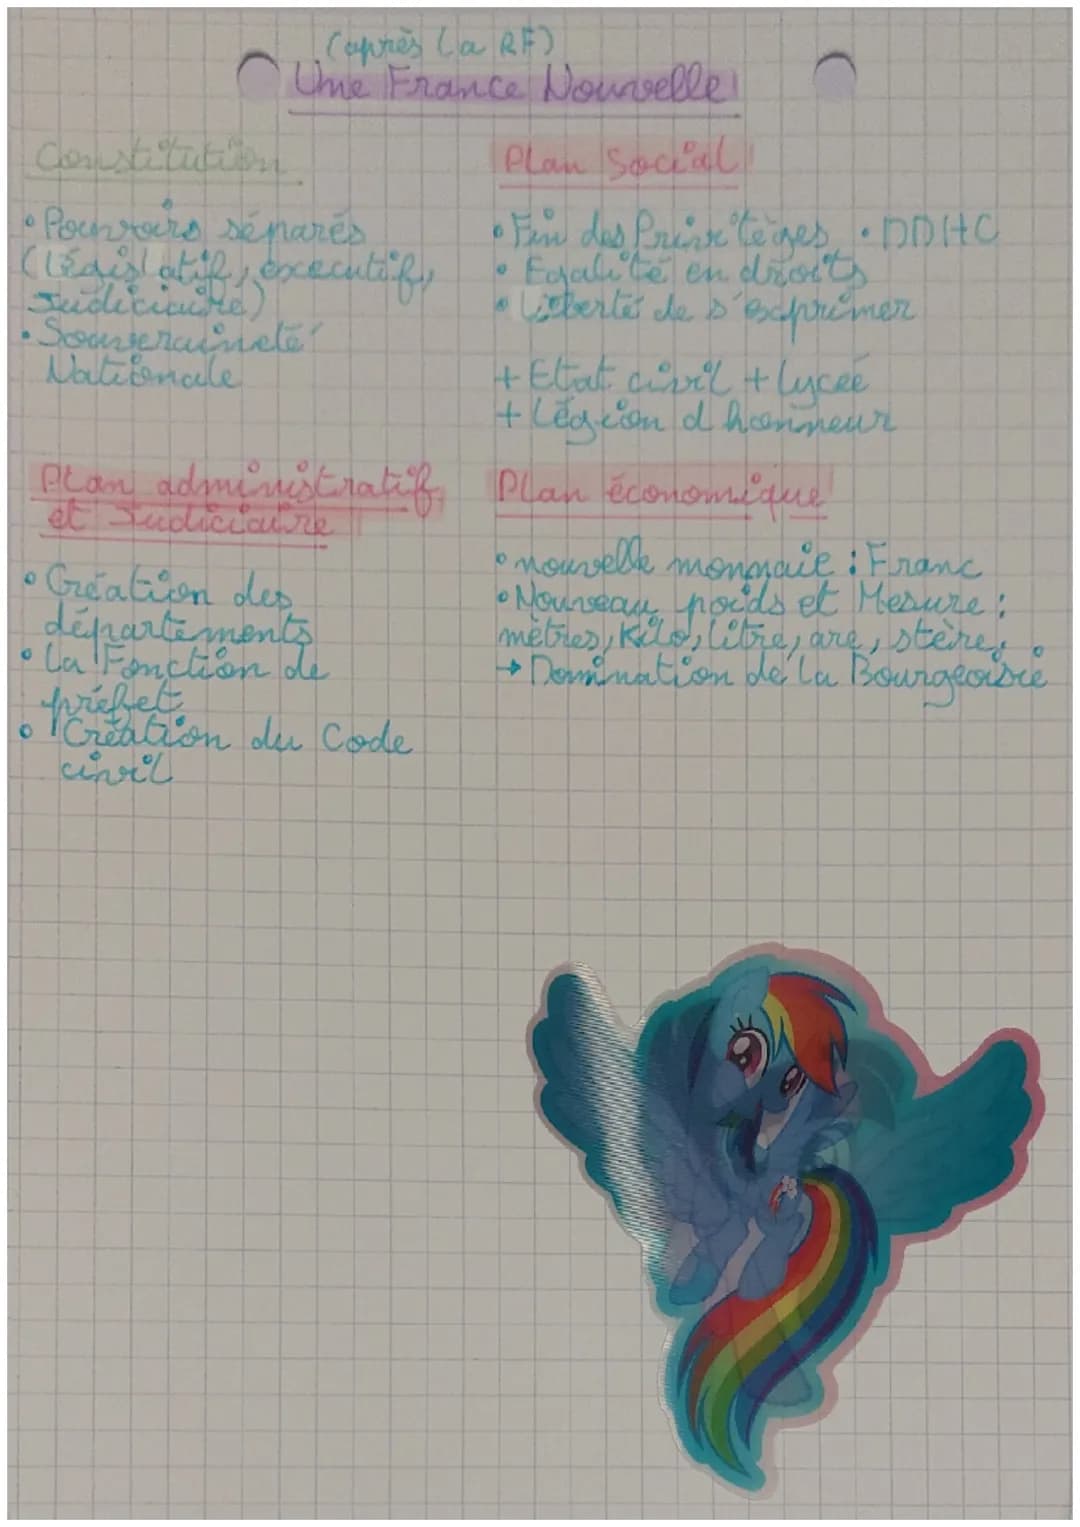 (après la RF)
Une France Nouvelle
Constitution
• Pouvoirs séparés
(législatif, éxecutif,
Judiciaire)
• Souveraineté
Nationale
Plan Social
• Fin des Privilèges • DDHC
• Egalité en droits
• Liberté de s'exprimer
+ Etat civil + lycée
+ Légion d honneur
Plan administratif
et Judiciaire
• Création des
départements
• La Fonction de
préfet
• Création du Code
civil
Plan économique
• nouvelle monnaie : Franc
• Nouveau poids et Mesure :
mètres, Kilo, litre, are, stère,
→ Domination de la Bourgeoisie